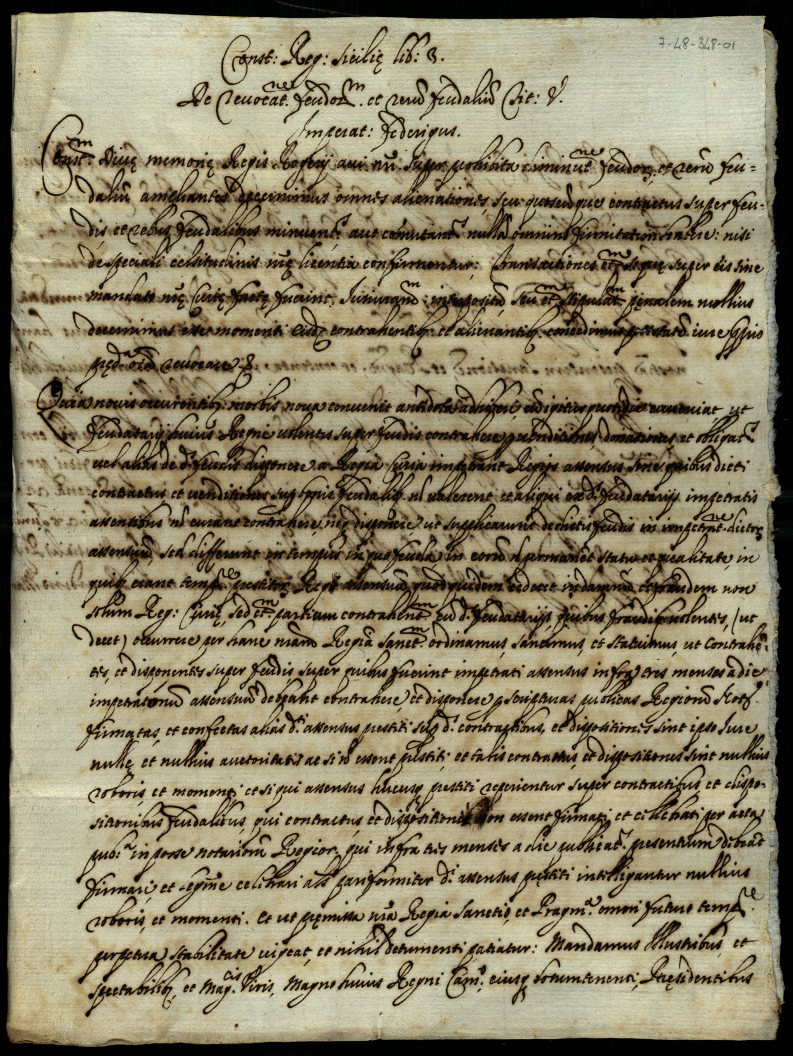 7-48-348-01
Const: Reg: Sicilię lib: 3.
De revocat.ne feudor.m et rerũ feudaliũ Tit: V.
Imperat: Federigus.
Const.m Diuę memorię Regis Rogerij aui nrĩ super prohibita diminut.ne feudor, et rerũ feu=
daliũ ampliantes decernimus omnes alienationes, seu quoscunque contractus super feu-
dis et rebus feudalibus minuent. aut comutant. nullã omnino firmitatem habere: nisi
de speciali celsitudinis nrę licentia confirmentur: Transactiones et.m super eis sine
mandato nrę Curię factę fuerint, Iuriurand.m interpositũ seu et.m stipulat.m pęnalem nullius
decernimus esse momenti eisd. contrahentib. et alienantib. iure
revocare &.
Quia novis occurrentib. morbis nova convenit antidota ut
feudatarij huius Regni volentes super feudis contrahere venditiones, donationes, et obligat.
vel alias de d. feudis disponere a Regia Curia impetrant Regios assensus sine quibus dicti
contractus et venditiones sup ipsis feudalib. nõ valerent et aliqui ex d. feudatarijs impetratis
assensibus nõ curant contrahere, neq disponere ut supplicarunt de dictis feudis in impetrat.ne dictor
assensuũ, sed differunt in tempus in quo feuda in eorũ nõ permanet statu et qualitate in
quib. erant temp.re pręstitor Regiorũ assensuũ quod quidem cedere in damnũ et fraudem non
solum Reg: Curię, sed et.m partium contrahent.m cũ d. feudatarijs quibus fraudis volentes, (ut
decet) occurrere per hanc nram Regiã Sanct.m ordinamus sancimus, et statuimus ut Contrahẽ-
tes, et disponentes super feudis super quibus fuerint impetrati assensus infra tres menses a die
impetrationũ assensuũ debeant contrahere, et disponere p scripturas publicas Regiorũ Not.
firmatas, et confectas alias d. assensus pręstiti sup d. contractibus, et dispositiones sint ipso Iure
nullę, et nullius auctoritatis ac si nõ essent pręstiti, et talis contractus et dispositiones sint nullius
roboris et momenti, et si qui assensus hucusq. pręstiti reperientur super contractibus et dispo-
sitionibus feudalibus, qui contractus et dispositiones non essent firmati, et celebrati per acta
pub.a in posse notariorũ Regior, qui infra tres menses a die publicat. presentium debeãt
firmari, et legitime celebrari als pariformiter d. assensus pręstiti intelligantur nullius
roboris, et momenti. Et ut pręmissa nra Regia Sanctio, et Pragm.a omni futuro temp.re
perpetua stabilitate vigeat, et nihil detrimenti patiatur: Mandamus Illustribus, et
spectabilib. et Mag.cis Viris, Magno huius Regni Cam.o eiusq. locumtenenti, Pręsidentibus